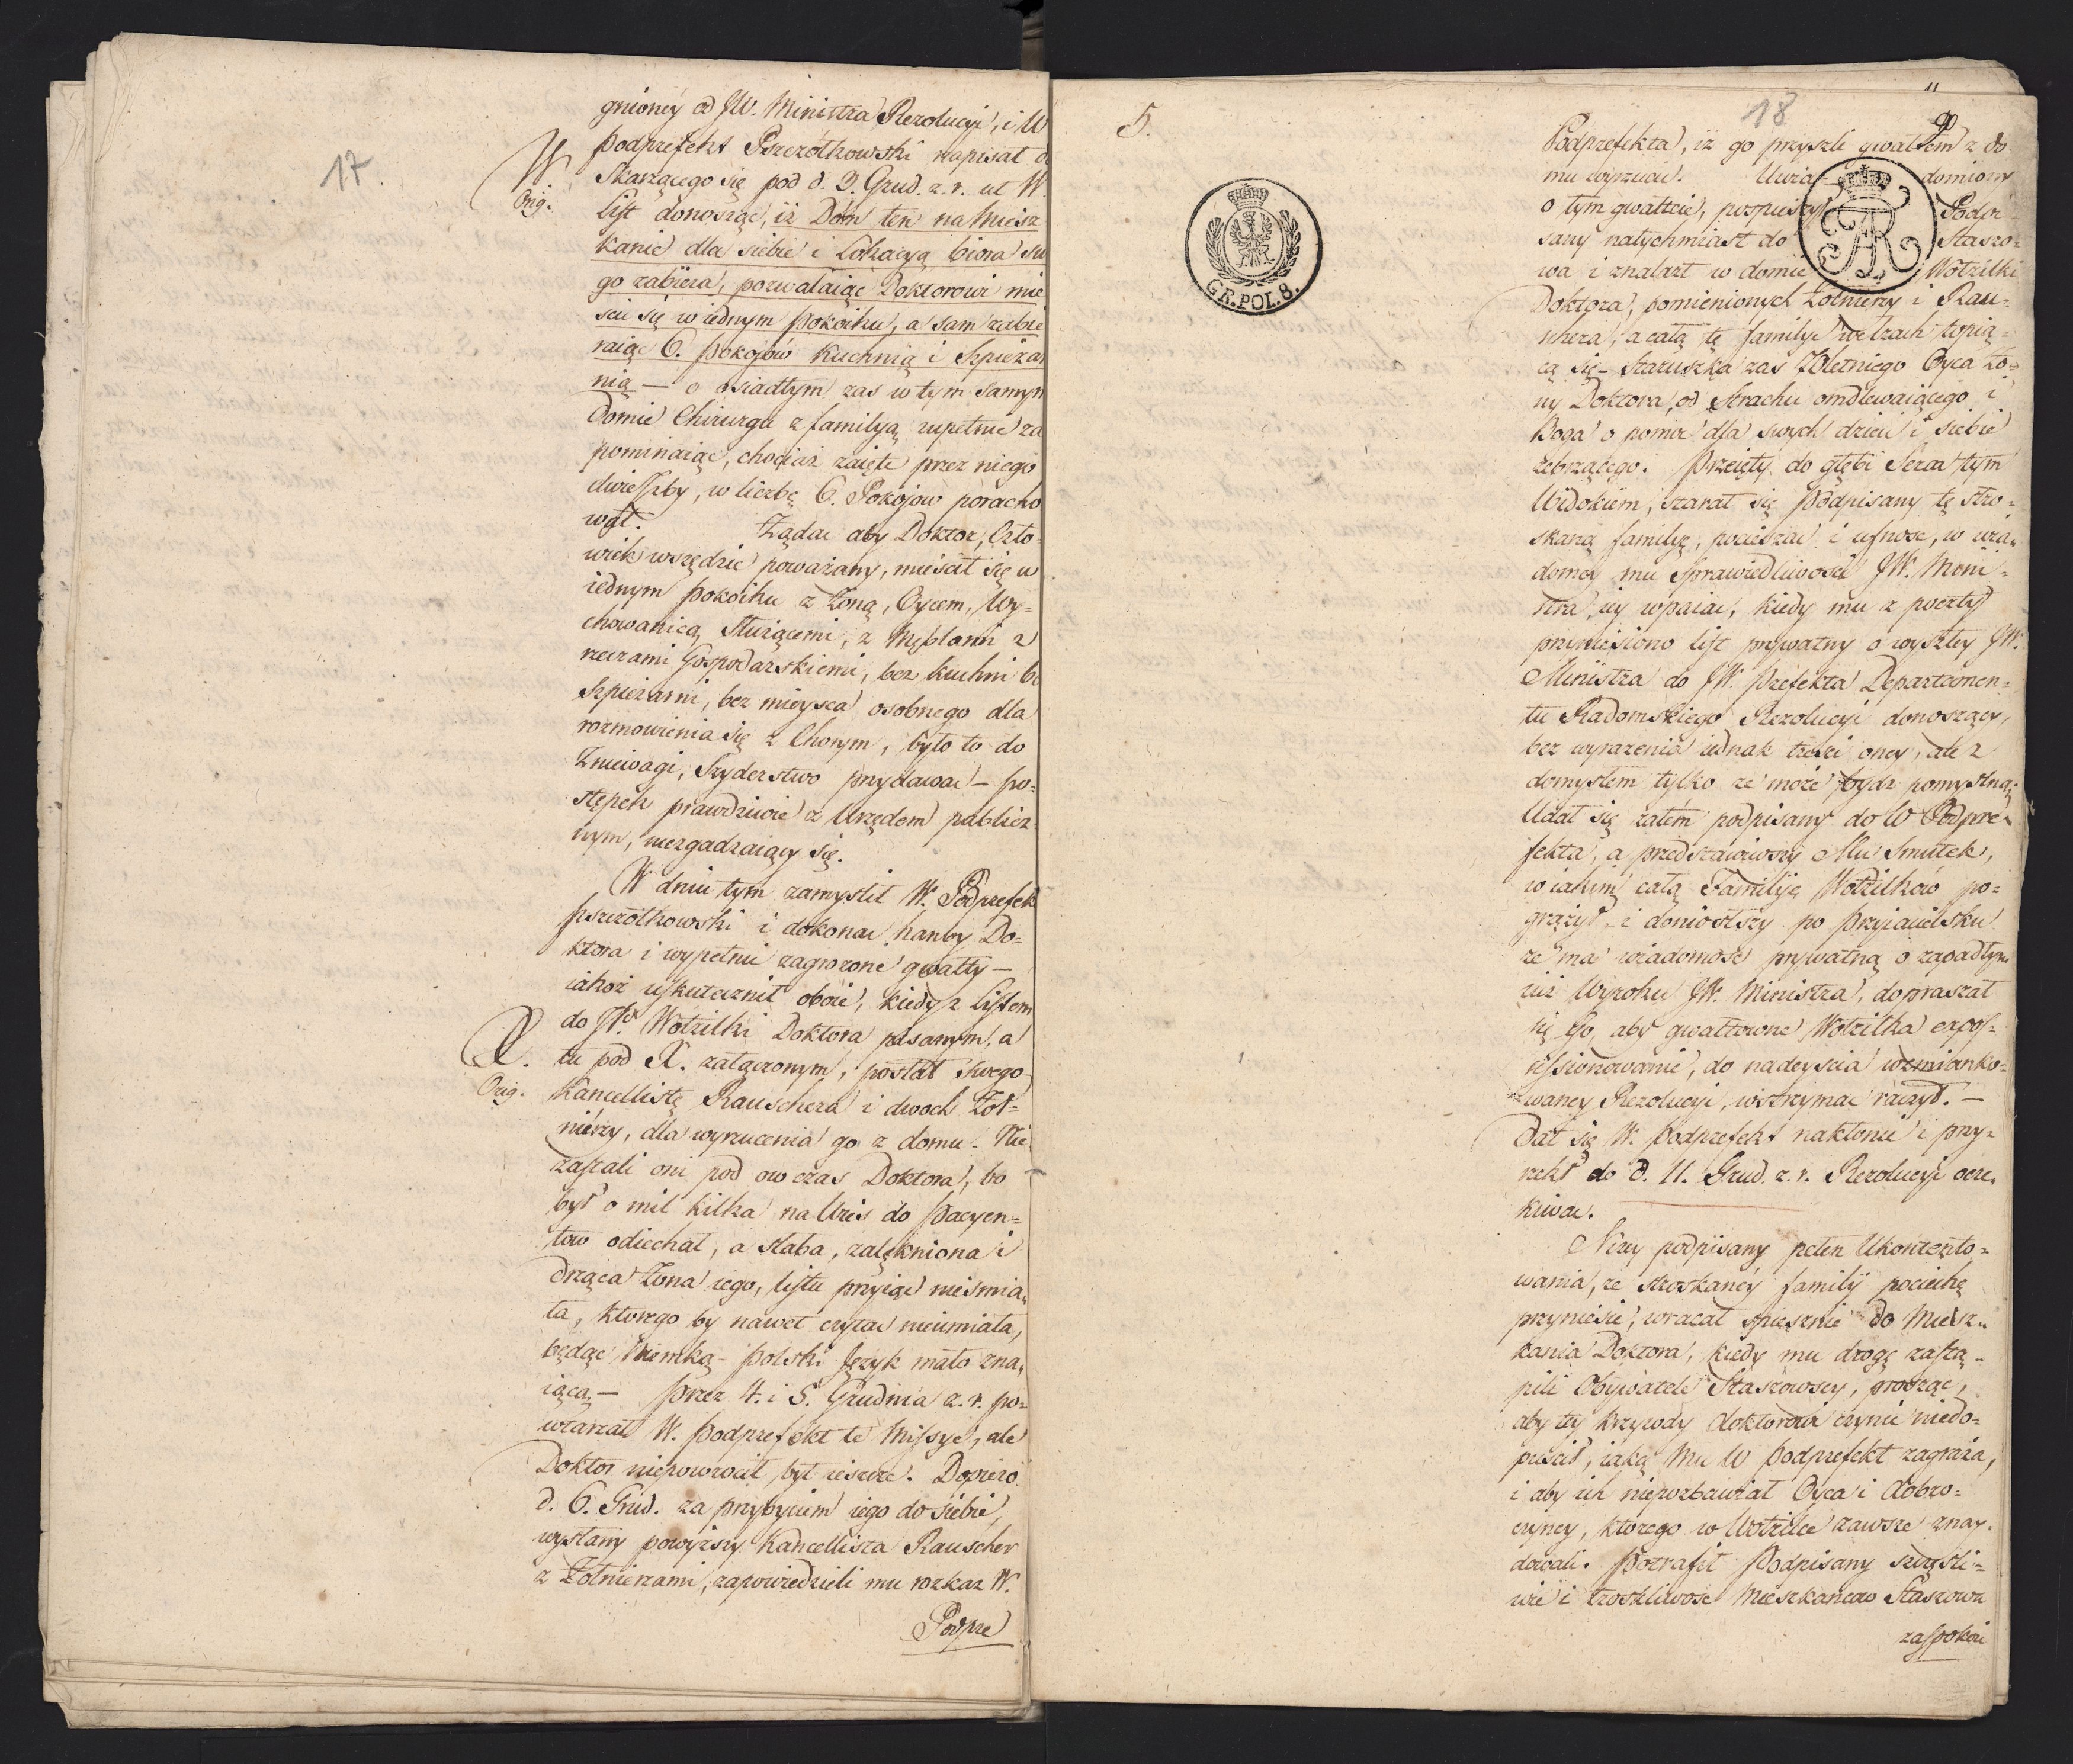 17.
gnioney od JW. Ministra Rezolucyi, i W
Podprefekt Pszczółkowski napisał d
W.
Orig.
Skarżącego się pod d. 3. Grud. z. r. ut W.
list donosząc, iż Dom ten na Miesz
kanie dla siebie i Lokacyą biora sw
go zabiera, pozwalaiąc Doktorowi mie
scic się w iednym Pokoiku, a sam zabie
raiąc 6. Pokojów Kuchnią i Szpiżar
nią — o osiadłym zas w tym samym
Domie Chirurgu z familyą zupełnie za
pominaiąc, chociaż zaięte przez niego
dwie Izby, w liczbę 6. Pokojow poracho
wał. Żądac aby Doktor, Czło
wiek wszędzie poważany, mieścił się w
iednym Pokoiku z Żoną, Oycem, Wy=
chowanicą Służącemi, z Meblami z
rzeczami Gospodarskiemi, bez kuchni be
Szpiżarni, bez mieysca osobnego dla
rozmowienia się z Chorym, było to do
Zniewagi, Szyderstwo przydawac — Po=
stępek prawdziwie z Urzędem publicz
nym, niezgadzaiący się.
W dniu tym zamyslił W. Podprefek
Pszczółkowski i dokonac hanby Do=
ktora i wypełnic zagrożone gwałty —
iakoż uskutecznił oboie, kiedy z Listem
do Wo Wotzilki Doktora pisanym, a
X.
Orig.
tu pod X. załączonym, posłał swego
Kancellistę Rauschera i dwoch Żoł=
nierzy, dla wyrzucenia go z domu. Nie
zastali oni pod ow czas Doktora, bo
był o mil kilka na Wies do Pacyen=
tow odiechał, a słaba, zalękniona i
drżąca Żona iego, listu przyiąc nieśmia
ła, ktorego by nawet czytac nieumiała,
będąc Niemką — Polski Język mało zna
iącą — Przez 4. i 5. Grudnia z. r. po=
wtarzał W. Podprefekt te Missye, ale
Doktor niepowrocił był ieszcze. Dopiero
d. 6. Grud. za przybyciem iego do siebie,
wysłany powyższy Kancellista Rauscher
z Żołnierzami, zapowiedzieli mu rozkaz W.
Podpre
5.
GR.POL.8.
18
Podprefekta, iż go przyszli gwałtem z do
mu wyrzucic. Uwia= domiony
o tym gwałcie, pospieszył Podpi
sany natychmiast do Staszo=
wa i znalazł w domie Wotzilki
Doktora, pomienionych Żołnierzy i Rau=
schera, a całą tę familyę we łzach topią=
cą się — Staruszka zas 70letniego Oyca Żo=
ny Doktora, od Strachu omdlewaiącego i
Boga o pomoc dla swych dzieci i siebie
żebrzącego. Przeięty do głębi Serca tym
Widokiem, starał się Podpisany tę stro=
skaną familyę, pocieszac i ufnosc, w wia=
domey mu Sprawiedliwosci JW. Mini=
stra, iey wpaiac, kiedy mu z poczty
przyniesiono list prywatny o wyszłey JW.
Ministra do JW. Prefekta Departamen=
tu Radomskiego Rezolucyi donoszący,
bez wyrażenia iednak tresci oney, ale z
domysłem tylko ze może bydz pomyslną.
Udał się zatem podpisany do W Podpre=
fekta, a przedstawiwszy Mu Smutek,
w iakim całą Familiję Wotzilków po=
grążył — i doniosłszy po Przyiacielsku
że ma wiadomosc prywatną o zapadłym
iuż Wyroku JW. Ministra, dopraszał
się Go, aby gwałtowne Wotzilka expos=
sessionowanie, do nadeyscia wzmianko=
waney Rezolucyi, wstrzymac raczył. —
Dał się W. Podprefekt nakłonic i przy=
rzekł do d. 11. Grud. z. r. Rezolucyi ocze=
kiwac.
Niżey podpisany pełen Ukontento=
wania, że stroskaney familij pociechę
przyniesie, wracał spiesznie do Miesz=
kania Doktora, kiedy mu drogę zastą=
pili Obywatele Staszowscy, prosząc,
aby tey krzywdy doktorowi czynic niedo=
puscił, iaką Mu W Podprefekt zagraża,
i aby ich niepozbawiał Oyca i dobro=
czyncy, ktorego w Wotzilce zawsze znay=
dowali. Potrafił Podpisany szczęsli=
wie i troskliwosc Mieszkancow Staszowa
zaspokoic